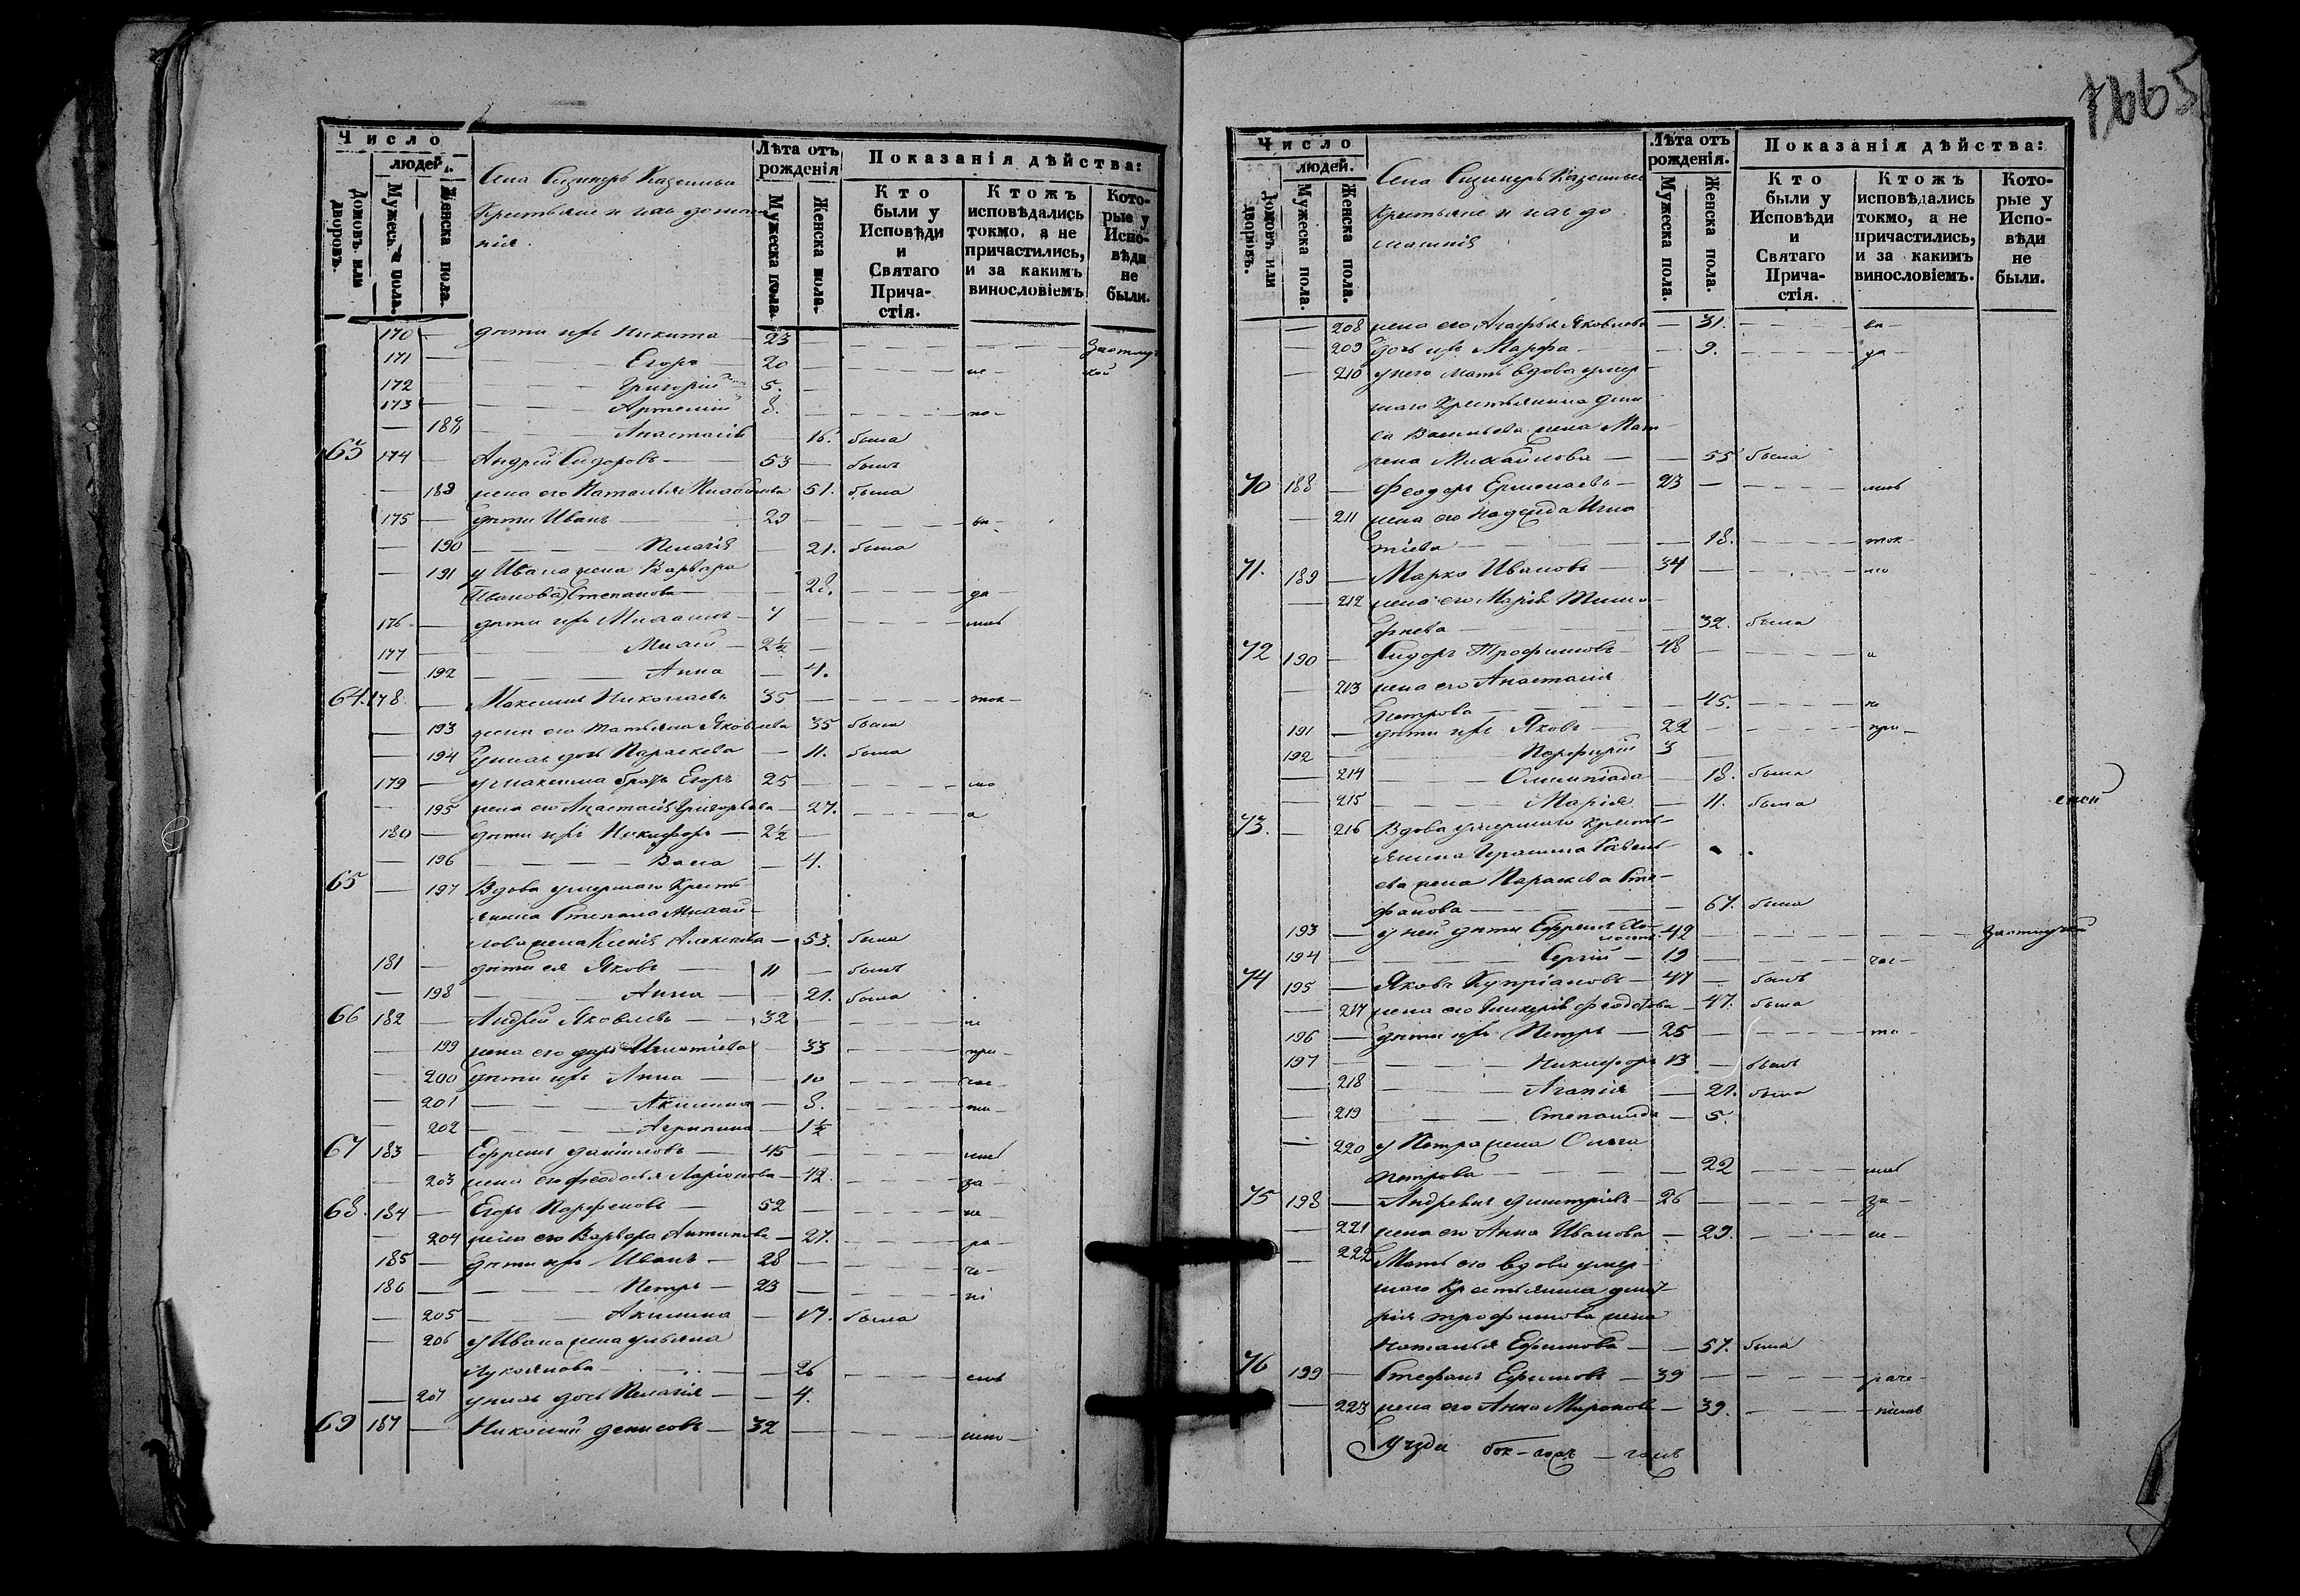 Число
людей.
Домовъ или дворовъ.
Мужеска пола.
Женска пола.
Села Казенныя
Крестьяне и ихъ домаш
нія.
Лѣта отъ рожденія
Мужеска пола.
Женска пола.
Показанія дѣйства:
Кто были у Исповѣди и Святаго Причастія.
Ктожъ исповѣдались токмо, а не причастились, и за какимъ винословіемъ
Которые у Исповѣди не были.
170 — дѣти ихъ Никита — 23
171 — Егоръ 20 не
172 — Григорій 5.
173 — Артемій 8. по
— 188 Анастасія 16. была
63 174 — Андрей Сидоровъ — 53 — былъ
— 189 жена его Наталья 51. была
175 — дѣти Иванъ — 29
— 190 — Пелагія — 21. была
— 191 у Ивана жена Варвара
(Иванова) Степанова — 28. да
176 — дѣти ихъ Михаилъ — 7
177 — 2½
— 192 — Анна — 4.
64. 178. — Максимъ Николаевъ 35 ток
— 193 жена его Татьяна Яковлева 35 была
— 194 у нихъ дочь Параскева — 11. была
179 — у Максима братъ Егоръ 25 мо
— 195 жена его Анастасія Григорьева — 27. а
180 — дѣти ихъ Никифоръ — 2½
— 196 — 4.
65 — 197 Вдова умершаго Кресть
янина Степана Михай
лова жена Ксенія Алексѣева — 53. была
181 — дѣти ея Яковъ — 11 — былъ
— 198 — Анна — 21. была
66 182 — Андрей Яковлевъ — 32 не
— 199 жена его Дарья Игнатіева — 33 при
— 200 дѣти ихъ Анна — 10 час
— 201 — Акилина — 8. ти
— 202 — Агрипина — 1½
67 183 — Ефремъ Даниловъ — 45
— 203 жена его Феодосья Ларіонова — 42. за
68. 184 — Егоръ Парфеновъ — 52 не
— 204 жена его Варвара Антипова — 27. ра
185 — дѣти ихъ Иванъ — 28 че
186 — Петръ — 23 ні
— 205 — Акилина — 17. была
— 206 у Ивана жена Ульяна
Лукоянова — 26 емъ
— 207 у нихъ дочь Пелагія — 4.
69 187 — Николай Денисовъ — 32
Число
людей.
Домовъ или дворовъ.
Мужеска пола.
Женска пола.
Села Казенные
Крестьяне и ихъ до
машнія
Лѣта отъ рожденія.
Мужеска пола.
Женска пола.
Показанія дѣйства:
Кто были у Исповѣди и Святаго Причастія.
Ктожъ исповѣдались токмо, а не причастились, и за какимъ винословіемъ.
Которые у Исповѣди не были.
— 208 жена его Агафья Яковлева — 31.
— 209 дочь ихъ Марфа — 9. да
— 210 у него мать вдова умер
шаго Крестьянина Дени
са Васильева жена Мат
рена Михайлова — 55 была
70 188 — Феодоръ Ермолаевъ — 23
— 211 жена его Надежда Игна
тіева — 18. ток
71. 189 — Марко Ивановъ — 34 мо
— 212 жена его Марія Тимо
фѣева — 32. была
72 190 — Сидоръ Трофимовъ — 48 а
— 213 жена его Анастасія
Петрова — 45. не
191 — дѣти ихъ Яковъ — 22 при
192 — Порфирій 3
— 214 — Олимпіада — 18. была
— 215 — Марія — 11. была
73. — 216 Вдова умершаго Кресть
янина Герасима Савель
ева жена Параскева Сте
фанова — 67. была
193 — у ней дѣти Ефремъ 42
194 — Сергій — 19 час
74 195 — Яковъ Купріановъ — 47 — былъ
— 217 жена его Гликерія Феодотова — 47. была
196 — дѣти ихъ Петръ — 25 ти
197 — Никифоръ 13 — былъ
— 218 — Агапія — 21. была
— 219 — Степанида — 5.
— 220 у Петра жена Ольга
Петрова — 22
75 198 — Андреянъ Дмитріевъ — 26 за
— 221 жена его Анна Иванова — 29. не
— 222 Мать его вдова умер
шаго Крестьянина Дмит
рія Трофимова жена
Наталья Ефимова — 57. была
76 199 — Стефанъ Ефимовъ — 39 раче
— 223 жена его Анна Миронова — 39. ніемъ